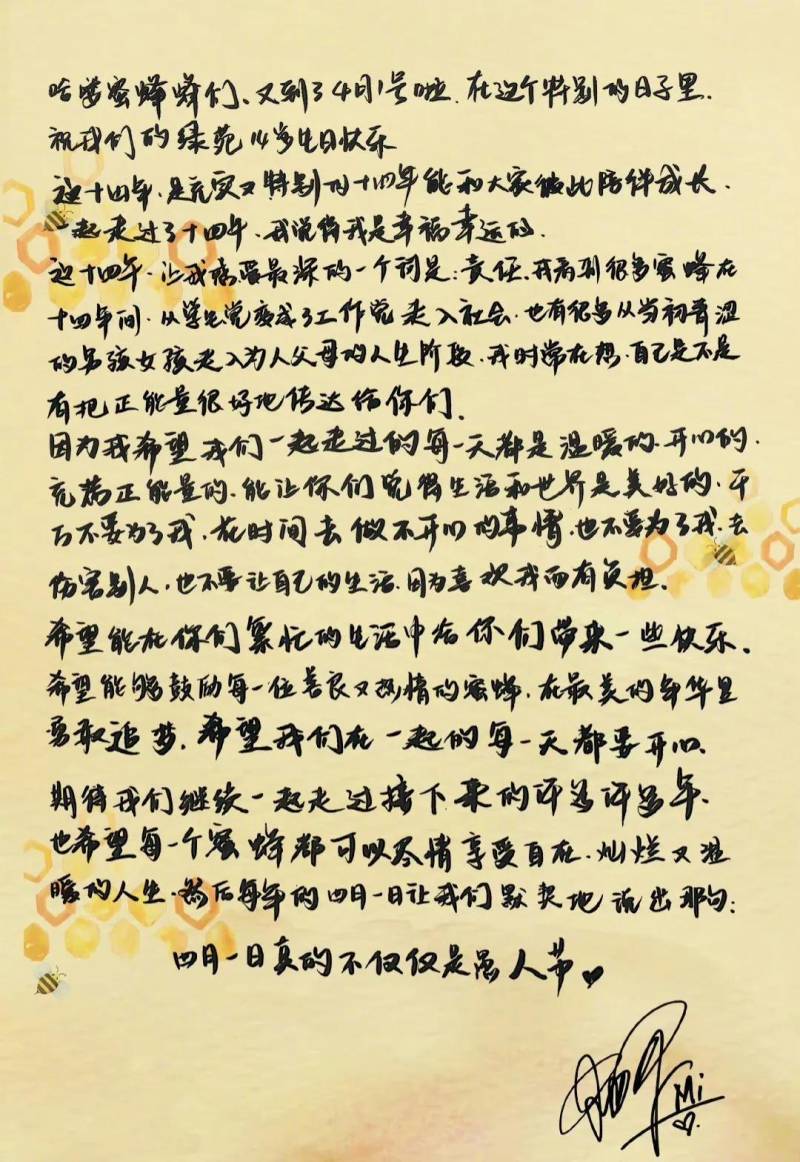 哈喽蜜蜂蜂们、又到了4月1号啦.在这个特别的日子里.
祝我们的绿苑14岁生日快乐
这十四年.是充实又特别的十四年能和大家彼此陪伴成长.
一起走过了十四年.我觉得我是幸福幸运的.
这十四年.让我感受最深的一个词是：责任.我看到很多蜜蜂在
十四年间.从学生党变成了工作党走入社会.也有很多从当初青涩
的男孩女孩走入为人父母的人生阶段.我时常在想.自己是不是
有把正能量很好地传达给你们.
因为我希望我们一起走过的每一天都是温暖的.开心的.
充满正能量的.能让你们觉得生活和世界是美好的.千
万不要为了我.花时间去做不开心的事情.也不要为了我.去
伤害别人，也不要让自己的生活.因为喜欢我而有负担.
希望能在你们繁忙的生活中给你们带来一些快乐.
希望能够鼓励每一位善良又热情的蜜蜂.在最美的年华里
勇敢追梦.希望我们在一起的每一天都要开心.
期待我们继续一起走过接下来的许多许多年.
也希望每一个蜜蜂都可以尽情享受自在.灿烂又温
暖的人生.然后每年的四月一日让我们默契地说出那句：
四月一日真的不仅仅是愚人节♥
Mi